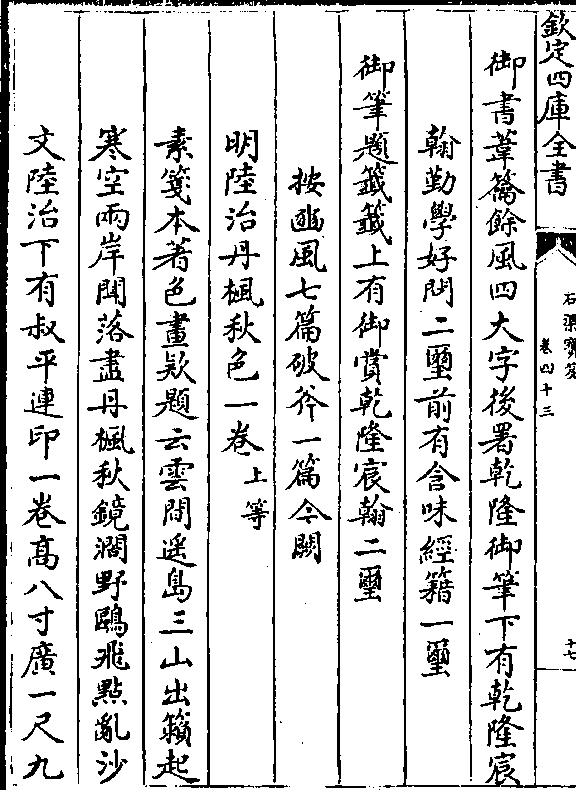 欽定四庫全書
石渠寶笈
卷四十三
十七
御書葦籥餘風四大字後署乾隆御筆下有乾隆宸
翰勤學好問二璽前有含味經籍一璽
御筆題籤籤上有御賞乾隆宸翰二璽
按豳風七篇破斧一篇今闕
明陸治丹楓秋色一卷上等
素箋本著色畫欵題云雲闊遥島三山出籟起
寒空兩岸聞落盡丹楓秋鏡濶野鷗飛點亂沙
文陸治下有叔平連印一卷高八寸廣一尺九